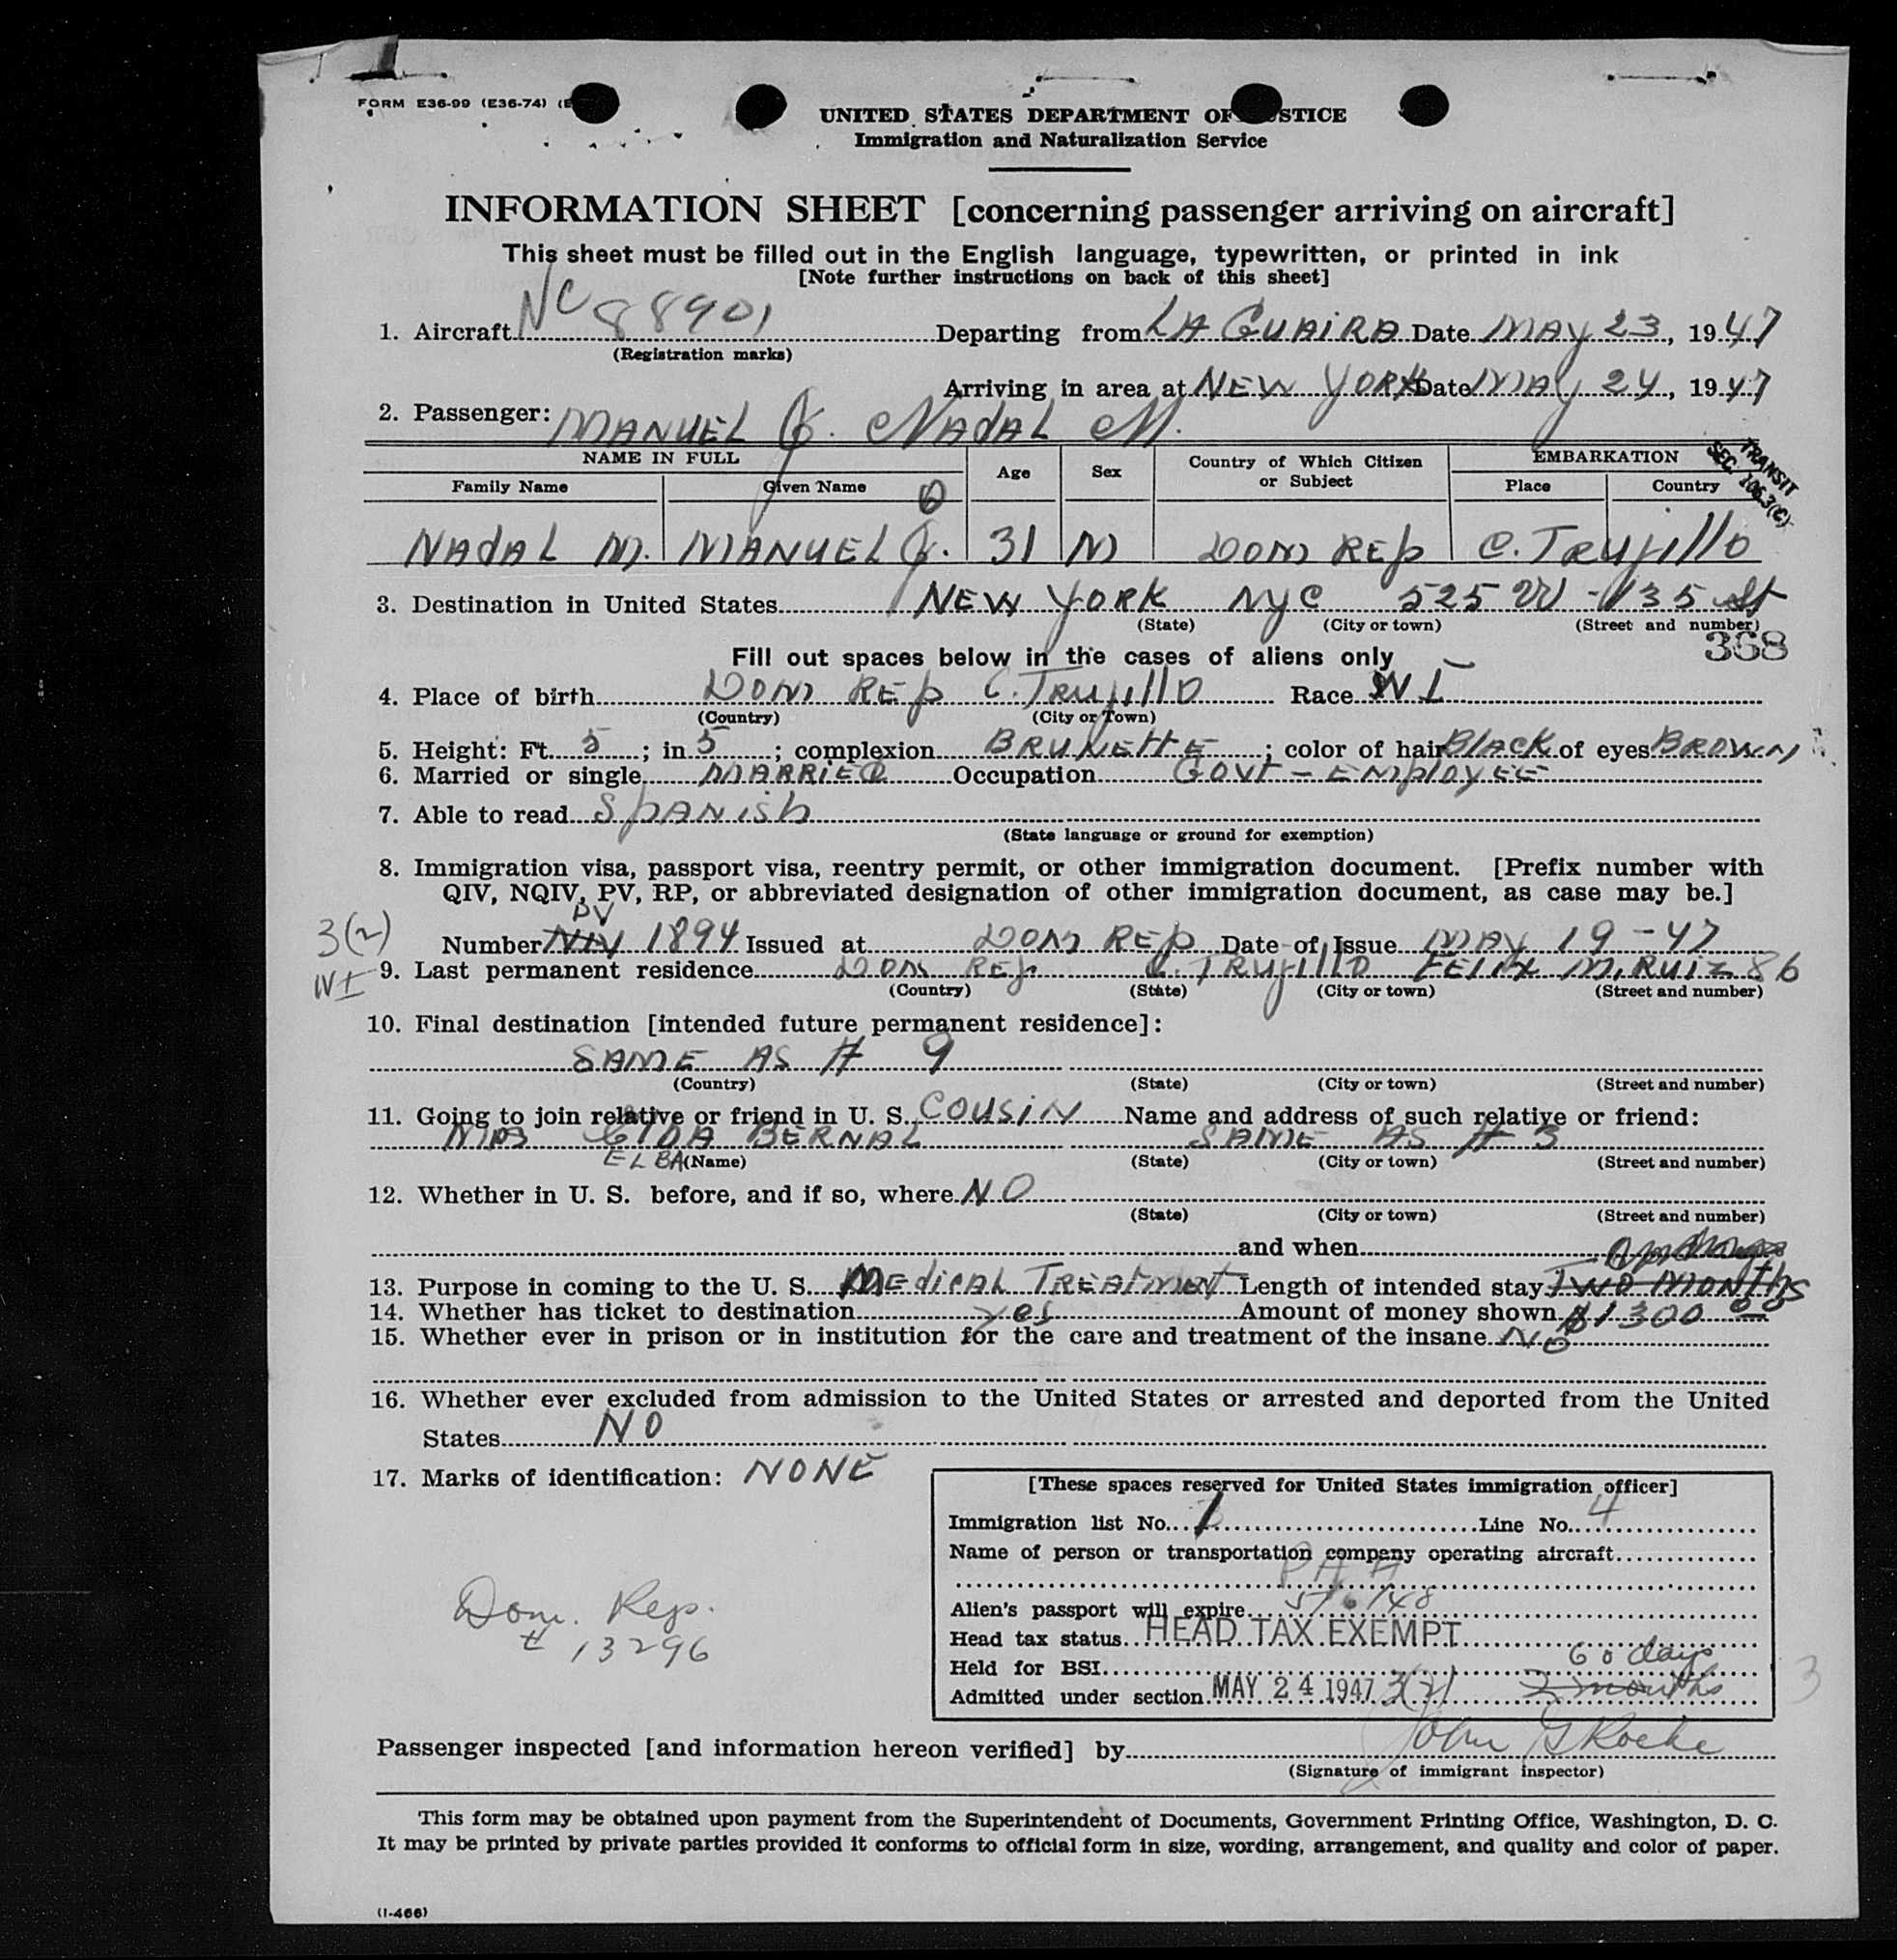 FORM E36-99 (E36-74)
UNITED STATES DEPARTMENT OF JUSTICE
Immigration and Naturalization Service
INFORMATION SHEET [concerning passenger arriving on aircraft]
This sheet must be filled out in the English language, typewritten, or printed in ink
[Note further instructions on back of this sheet]
1. Aircraft NC 88901 Departing from LA GUAIRA Date MAY 23, 1947
(Registration marks)
Arriving in area at NEW YORK Date MAY 24, 1947
2. Passenger: MANUEL NADAL M.
NAME IN FULL Age Sex Country of Which Citizen or Subject EMBARKATION
Family Name Given Name Place Country
TRANSIT
SEC. 106.3(C)
NADAL M. MANUEL 31 M DOM REP C. TRUJILLO
3. Destination in United States NEW YORK NYC 525 W - 135 St
(State) (City or town) (Street and number)
368
Fill out spaces below in the cases of aliens only
4. Place of birth DOM REP C. TRUJILLO Race WI
(Country) (City or Town)
5. Height: Ft. 5; in 5; complexion BRUNETTE; color of hair BLACK of eyes BROWN
6. Married or single MARRIED Occupation GOVT - EMPLOYEE
7. Able to read SPANISH
(State language or ground for exemption)
8. Immigration visa, passport visa, reentry permit, or other immigration document. [Prefix number with
QIV, NQIV, PV, RP, or abbreviated designation of other immigration document, as case may be.]
PV
3(2) Number NIV 1894 Issued at DOM REP Date of Issue MAY 19-47
WI 9. Last permanent residence DOM REP C. TRUJILLO FELIX M. RUIZ 86
(Country) (State) (City or town) (Street and number)
10. Final destination [intended future permanent residence]:
SAME AS # 9
(Country) (State) (City or town) (Street and number)
11. Going to join relative or friend in U. S. COUSIN Name and address of such relative or friend:
MRS BERNAL SAME AS # 3
ELBA (Name) (State) (City or town) (Street and number)
12. Whether in U. S. before, and if so, where NO
(State) (City or town) (Street and number)
and when
13. Purpose in coming to the U. S. MEDICAL TREATMENT Length of intended stay TWO MONTHS
14. Whether has ticket to destination yes Amount of money shown $1300 00
15. Whether ever in prison or in institution for the care and treatment of the insane NO
16. Whether ever excluded from admission to the United States or arrested and deported from the United
States NO
17. Marks of identification: NONE
[These spaces reserved for United States immigration officer]
Immigration list No. 1 Line No. 4
Name of person or transportation company operating aircraft
PAA
Alien's passport will expire
Head tax status HEAD TAX EXEMPT
Held for BSI 60 days
Admitted under section MAY 24 1947 3(2) 2 months
3
Dom. Rep.
# 13296
Passenger inspected [and information hereon verified] by John G Roche
(Signature of immigrant inspector)
This form may be obtained upon payment from the Superintendent of Documents, Government Printing Office, Washington, D. C.
It may be printed by private parties provided it conforms to official form in size, wording, arrangement, and quality and color of paper.
(I-466)